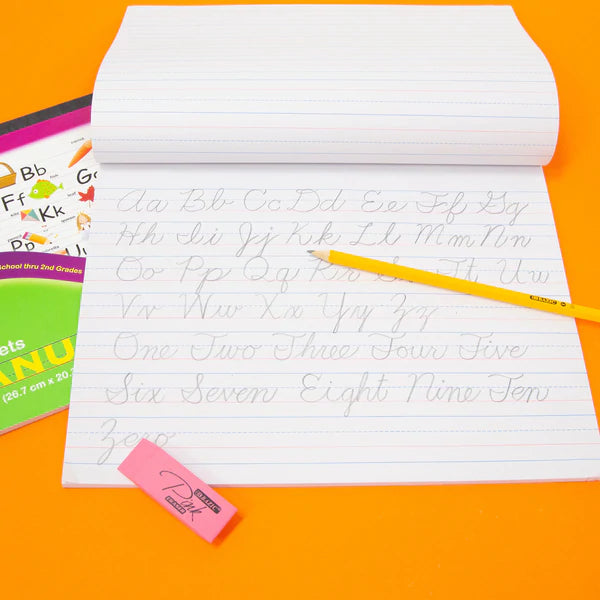 Aa Bb Cc Dd Ee Ff Gg
Hh Ii Jj Kk Ll Mm Nn
Oo Pp Qq Tt Uu
Vv Ww Xx Yy Zz
One Two Three Four Five
Six Seven Eight Nine Ten
Zero
Bb
Ff
Kk
Pp
School thru 2nd Grades
ets
ANU
(26.7 cm x 20.
BAZIC
Pink
BAZIC
ERASER